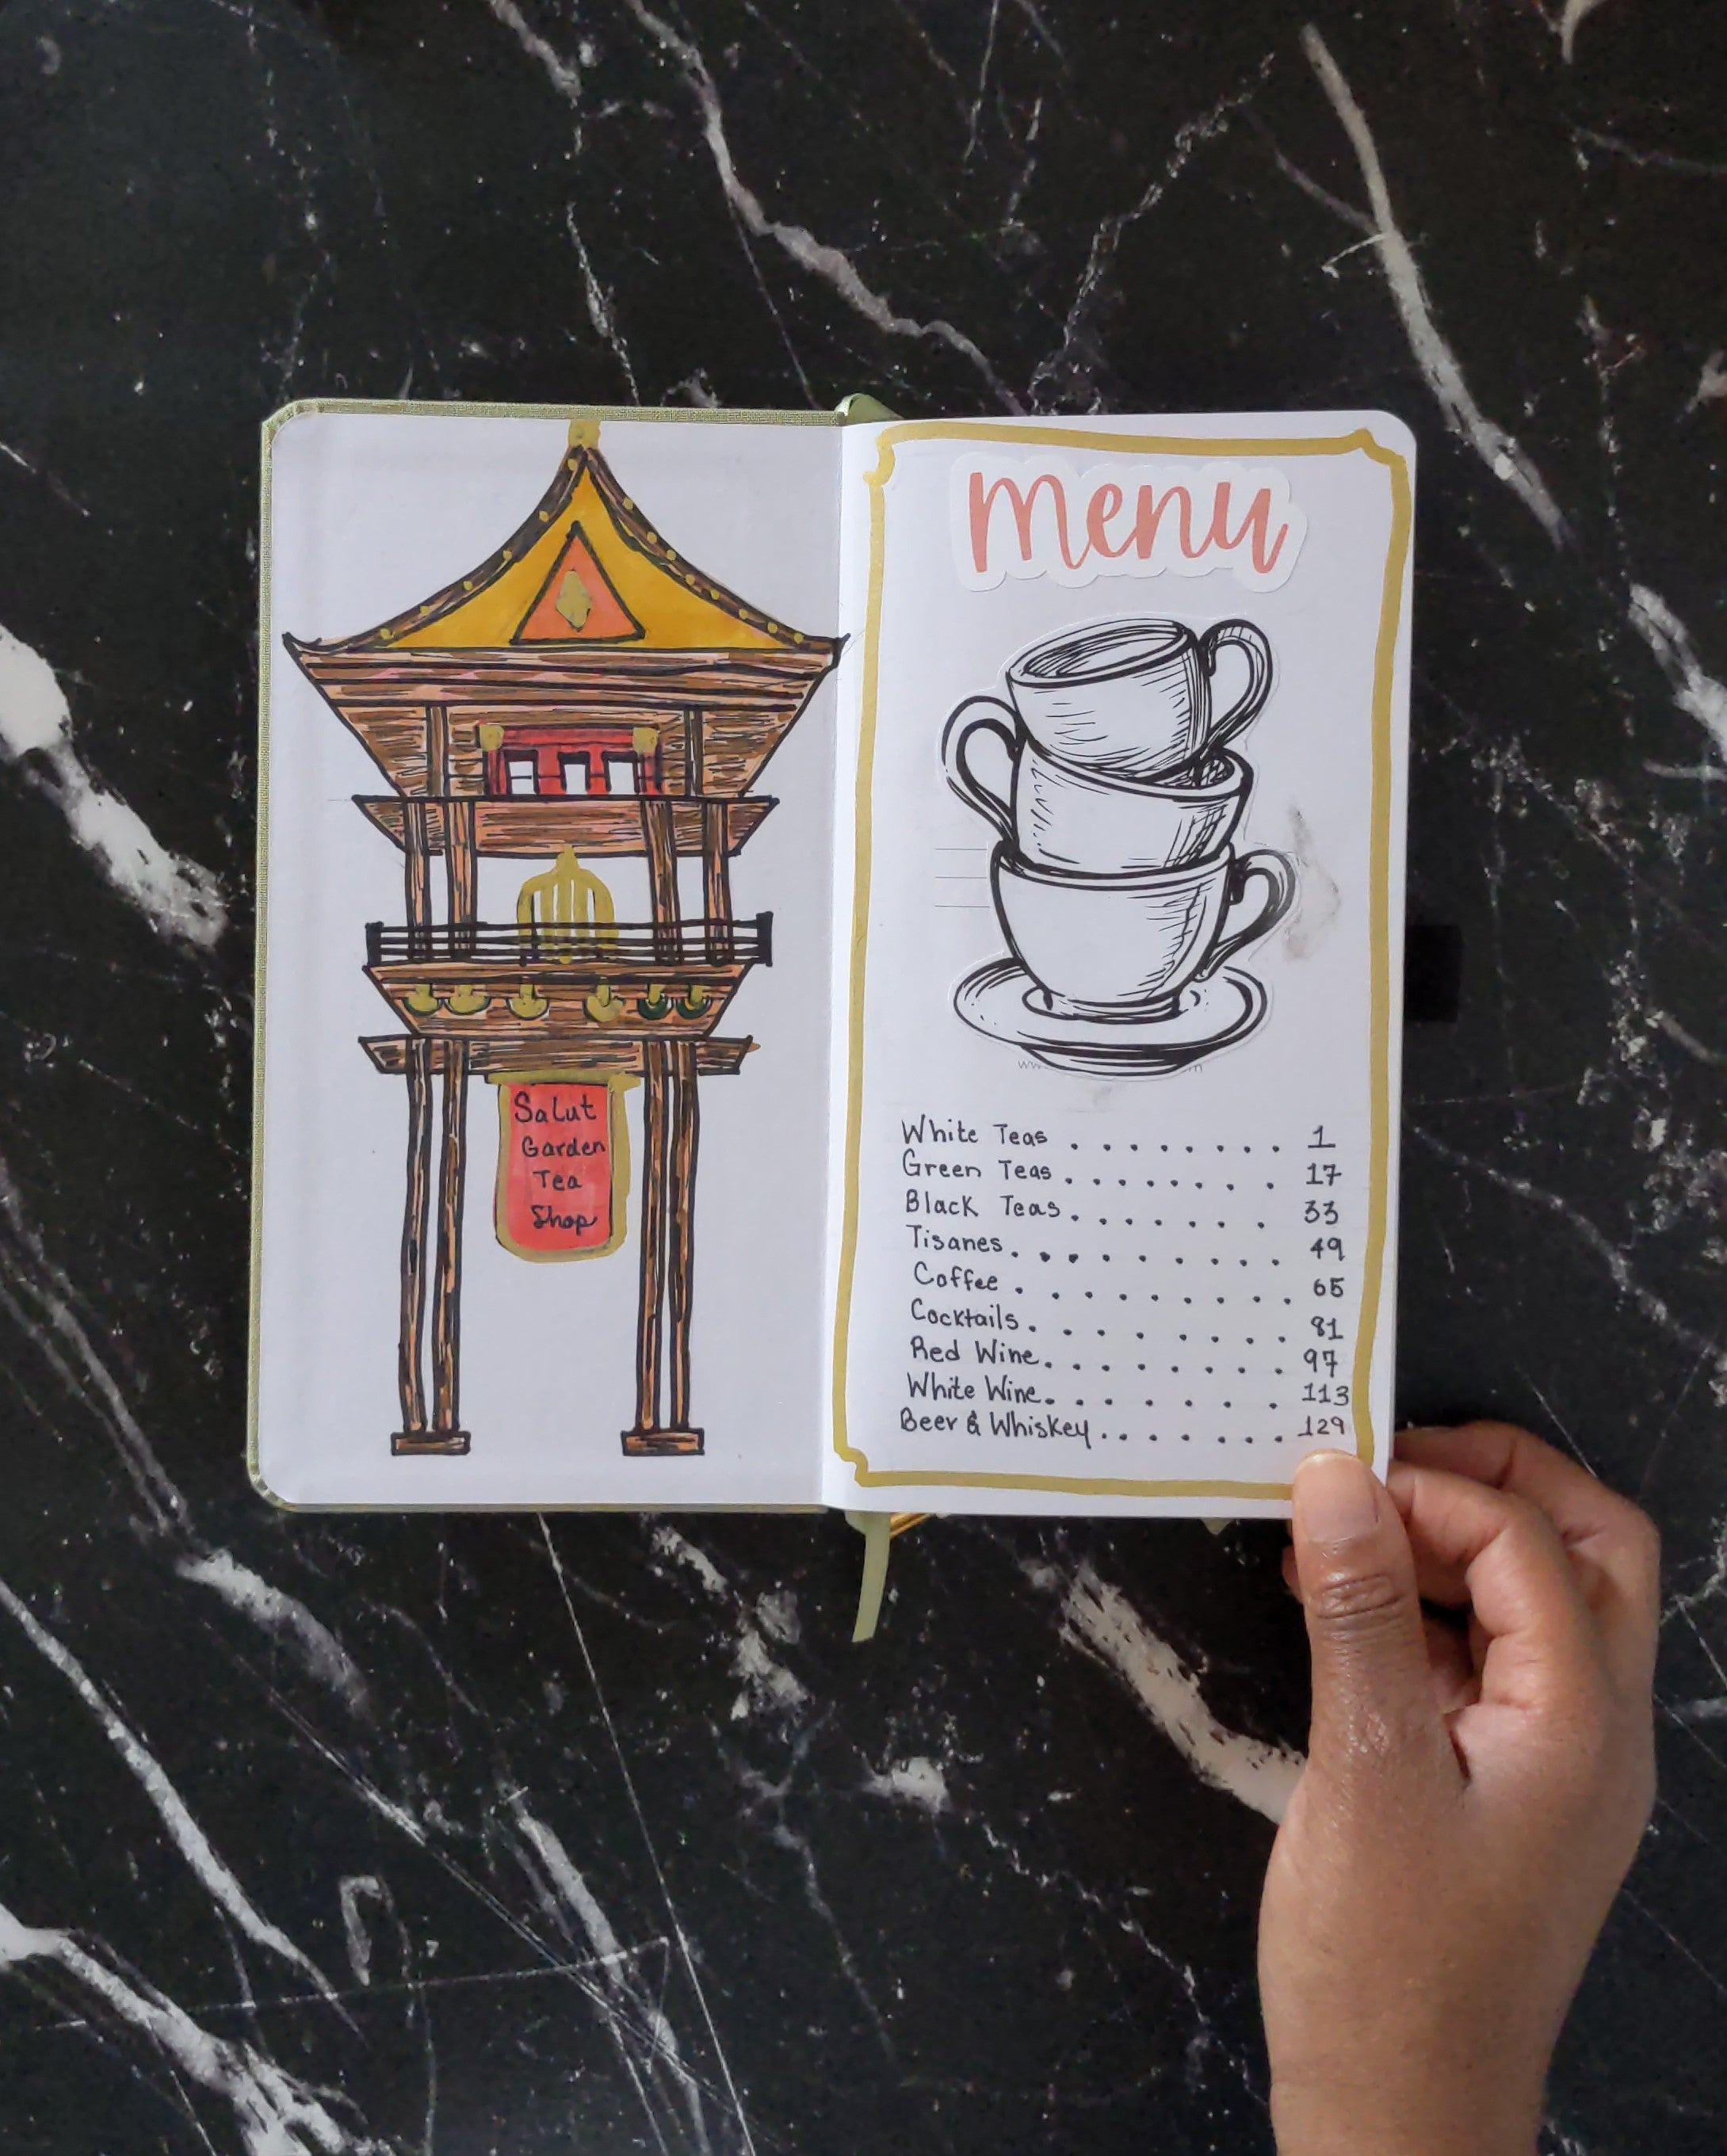 Salut
Garden
Tea
Shop
menu
White Teas . . . . . . . . 1
Green Teas . . . . . . . . 17
Black Teas . . . . . . . 33
Tisanes . . . . . . . . . 49
Coffee . . . . . . . . . 65
Cocktails . . . . . . . . 81
Red Wine . . . . . . . . 97
White Wine . . . . . . . 113
Beer & Whiskey . . . . . . . 129